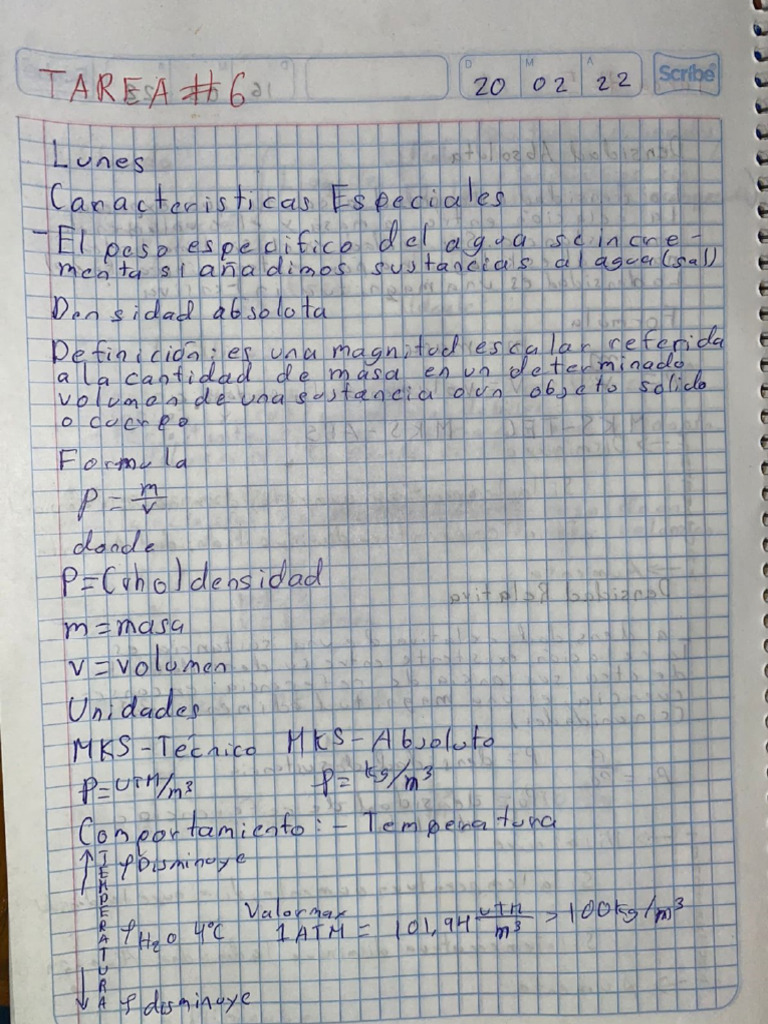 TAREA # 6
D M A
20 02 22
Scribe
Lunes
Caracteristicas Especiales
- El peso especifico del agua se incre-
menta si añadimos sustancias al agua (sal)
Densidad absoluta
Definición: es una magnitud escalar referida
a la cantidad de masa en un determinado
volumen de una sustancia o un objeto solido
o cuerpo
Formula
ρ = m/v
donde
ρ = (rho) densidad
m = masa
v = volumen
Unidades
MKS - Técnico MKS - Absoluto
ρ = UTM/m³ ρ = kg/m³
Comportamiento: - Temperatura
↑ ρ Disminuye
TEMPERATURA
ρ H₂O 4°C Valor max 1 ATM = 101,94 UTM/m³ > 100 kg/m³
↓ ρ disminuye